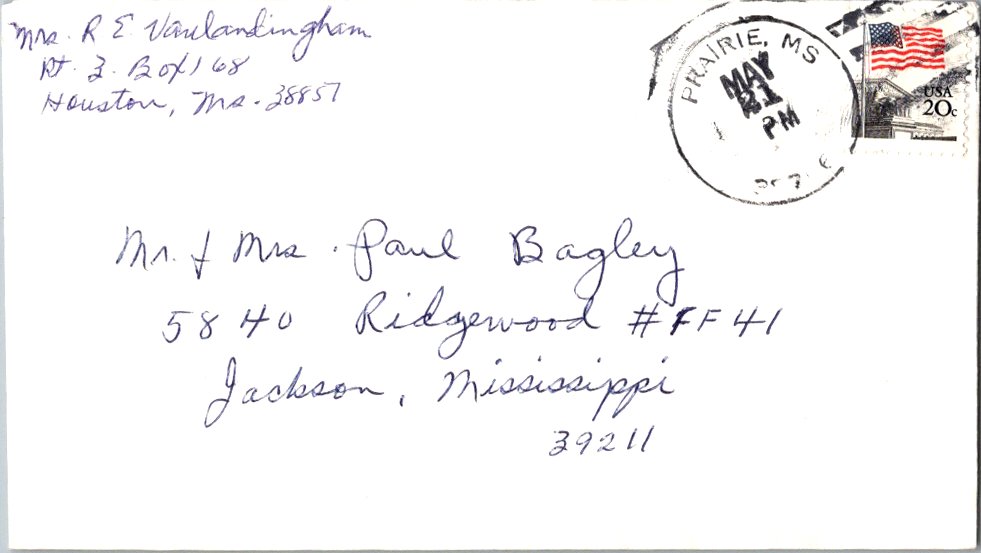 Mrs. R E Vanlandingham
Rt. 3. Box 168
Houston, Ms. 38851
PRAIRIE, MS
MAY
21
PM
USA
20c
Mr. & Mrs. Paul Bagley
5840 Ridgewood #FF41
Jackson, Mississippi
39211